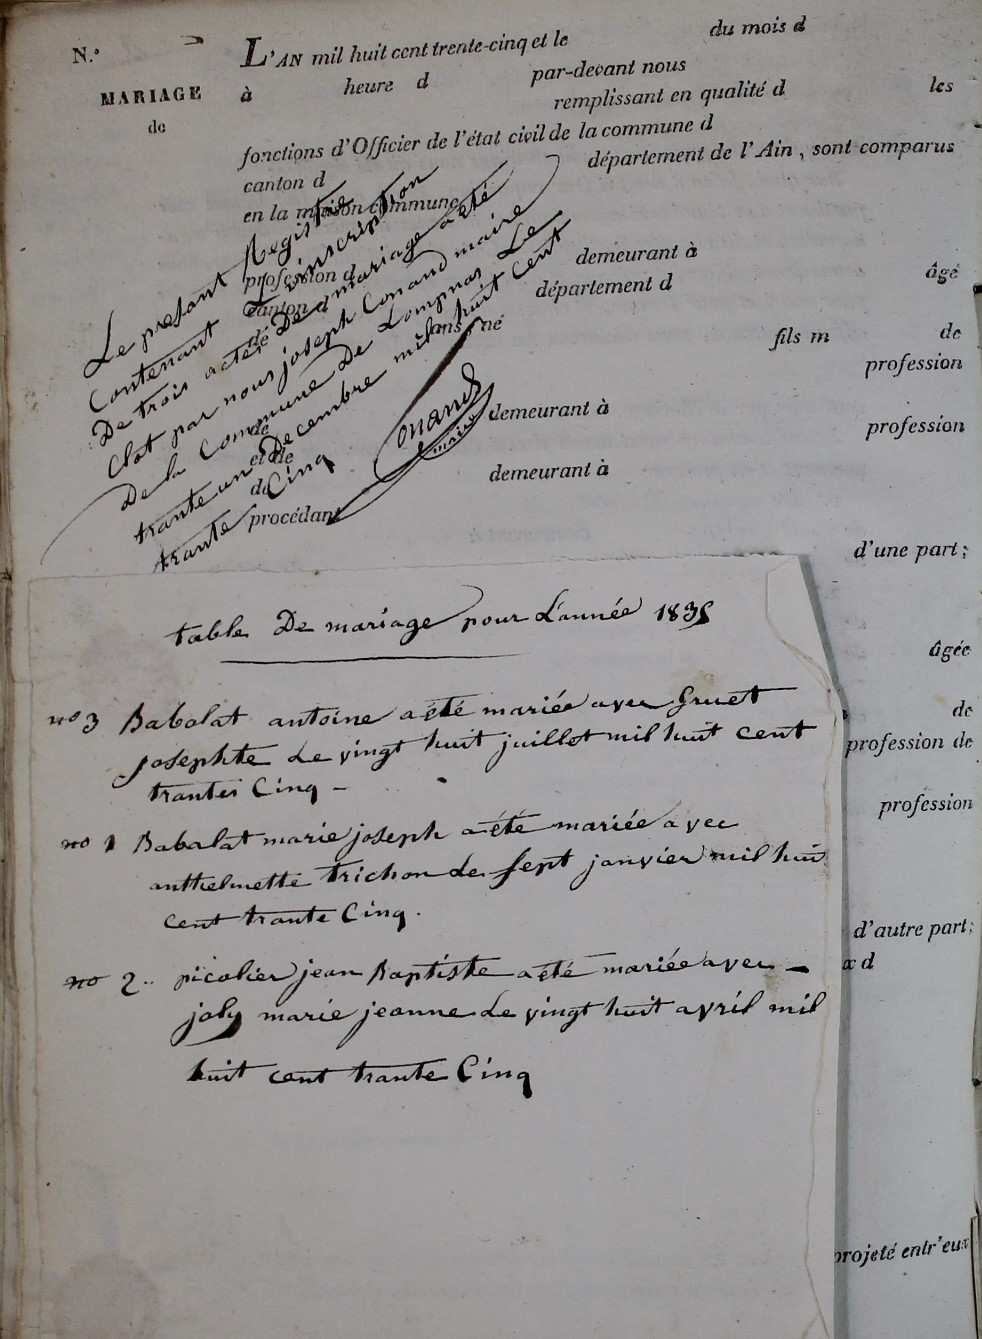 N.° L'AN mil huit cent trente-cinq et le du mois d
MARIAGE à heure d par-devant nous
de remplissant en qualité d les
fonctions d'Officier de l'état civil de la commune d
canton d département de l'Ain, sont comparus
en la maison commune
profession d demeurant à
canton d département d âgé
de ans né
fils m de
profession
de demeurant à
et de profession
de demeurant à
procédant
d'une part;
Le présant Registre
contenant L'inscription
De trois actes De mariage a été
Clot par nous joseph Conand maire
De la Commune De Lompnas Le
trante un Decembre mil huit cent
trante Cinq
Conand
maire
table De mariage pour L'année 1835
no 3 Babolat antoine a été mariée avec Gruet
josephte Le vingt huit juillet mil huit cent
trantes Cinq -
no 1 Babalat marie joseph a été mariée avec
anthelmette trichon Le sept janvier mil hui
cent trante Cinq.
no 2.. picolier jean Baptiste a été mariée avec -
joly marie jeanne Le vingt huit avril mil
huit cent trante Cinq
âgée
de
profession de
profession
d'autre part;
x d
projeté entr'eux